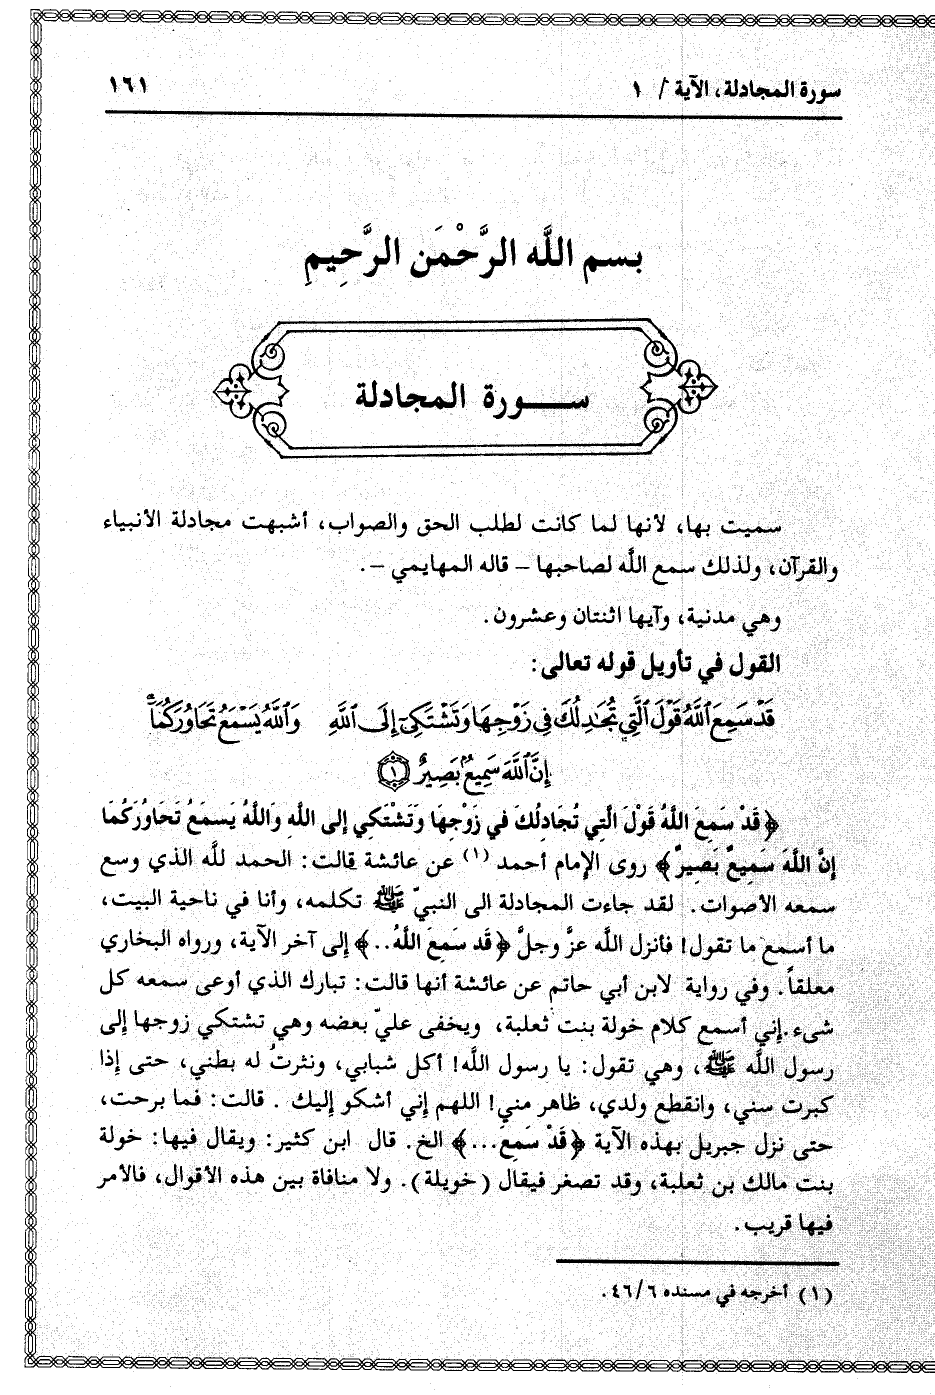 سورة المجادلة، الآية / ١
١٦١
بسم اللَّه الرَّحْمَن الرَّحِيمِ
ســـورة المجادلة
سميت بها، لأنها لما كانت لطلب الحق والصواب، أشبهت مجادلة الأنبياء
والقرآن، ولذلك سمع اللَّه لصاحبها – قاله المهايمي –.
وهي مدنية، وآيها اثنتان وعشرون.
القول في تأويل قوله تعالى:
قَدْ سَمِعَ ٱللَّهُ قَوْلَ ٱلَّتِي تُجَٰدِلُكَ فِي زَوْجِهَا وَتَشْتَكِيٓ إِلَى ٱللَّهِ وَٱللَّهُ يَسْمَعُ تَحَاوُرَكُمَآۚ
إِنَّ ٱللَّهَ سَمِيعٌۢ بَصِيرٌ ١
﴿قَدْ سَمِعَ اللَّهُ قَوْلَ الَّتِي تُجَادِلُكَ في زَوْجِهَا وَتَشْتَكِي إلى اللَّهِ وَاللَّهُ يَسمَعُ تَحَاوُرَكُمَا
إنَّ اللَّهَ سَمِيعٌ بَصِيرٌ﴾ روى الإمام أحمد (١) عن عائشة قالت: الحمد للَّه الذي وسع
سمعه الأصوات. لقد جاءت المجادلة الى النبيّ ﷺ تكلمه، وأنا في ناحية البيت،
ما أسمع ما تقول! فأنزل اللَّه عزَّ وجلَّ ﴿قَد سَمِعَ اللَّهُ..﴾ إلى آخر الآية، ورواه البخاري
معلقاً. وفي رواية لابن أبي حاتم عن عائشة أنها قالت: تبارك الذي أوعى سمعه كل
شىء.إني أسمع كلام خولة بنت ثعلبة، ويخفى عليّ بعضه وهي تشتكي زوجها إلى
رسول اللَّه ﷺ، وهي تقول: يا رسول اللَّه! أكل شبابي، ونثرتُ له بطني، حتى إذا
كبرت سني، وانقطع ولدي، ظاهر مني! اللهم إني أشكو إليك . قالت: فما برحت،
حتى نزل جبريل بهذه الآية ﴿قَدْ سَمِعَ...﴾ الخ. قال ابن كثير: ويقال فيها: خولة
بنت مالك بن ثعلبة، وقد تصغر فيقال (خويلة). ولا منافاة بين هذه الأقوال، فالأمر
فيها قريب.
(١) أخرجه في مسنده ٤٦/٦.